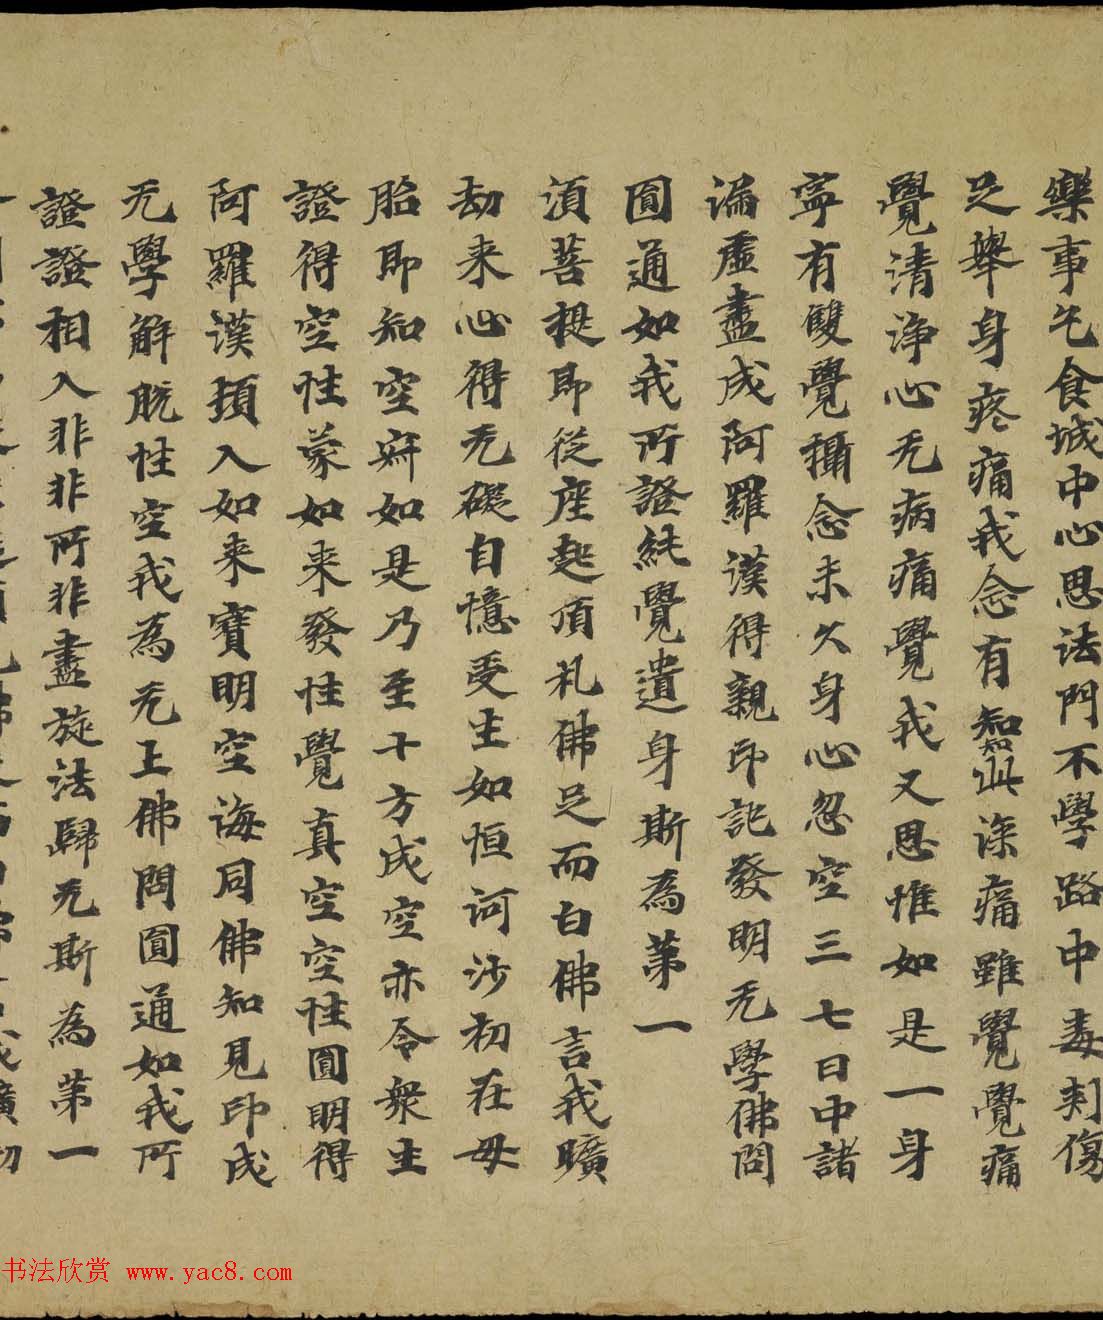 樂事乞食城中心思法門不學路中毒刺傷
足舉身疼痛我念有知知此深痛雖覺覺痛
覺清淨心无病痛覺我又思惟如是一身
寧有雙覺攝念未久身心忽空三七日中諸
漏虛盡成阿羅漢得親印記發明无學佛問
圓通如我所證純覺遺身斯為第一
須菩提即從座起頂礼佛足而白佛言我曠
劫来心得无礙自憶受生如恒河沙初在母
胎即知空寂如是乃至十方成空亦令衆生
證得空性蒙如来發性覺真空空性圓明得
阿羅漢頓入如来寶明空海同佛知見印成
无學解脫性空我為无上佛問圓通如我所
證證相入非非所非盡旋法歸无斯為第一
书法欣赏 www.yac8.com